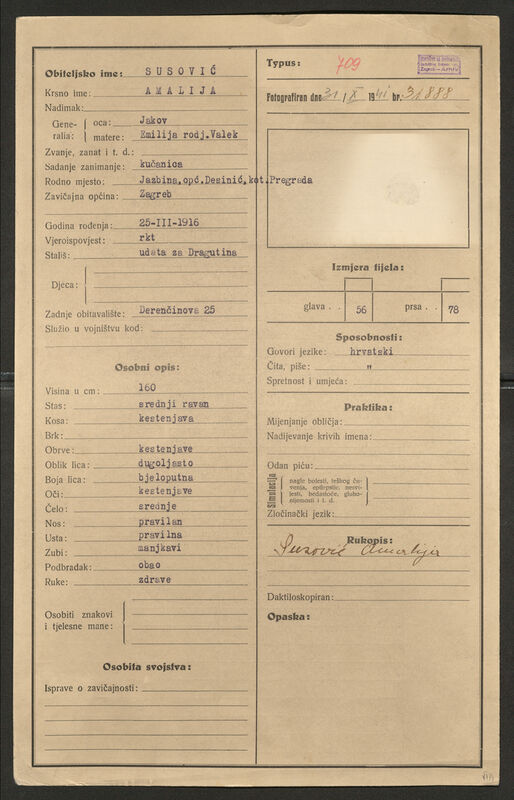 Obiteljsko ime: SUSOVIĆ
Krsno ime: AMALIJA
Nadimak:
Gene-
ralia:
oca: Jakov
matere: Emilija rodj.Valek
Zvanje, zanat i t. d.:
Sadanje zanimanje: kućanica
Rodno mjesto: Jazbina,opć.Desinić,kot.Pregrada
Zavičajna općina: Zagreb
Godina rođenja: 25-III-1916
Vjeroispovjest: rkt
Stališ: udata za Dragutina
Djeca:
Zadnje obitavalište: Derenčinova 25
Služio u vojništvu kod:
Osobni opis:
Visina u cm: 160
Stas: srednji ravan
Kosa: kestenjava
Brk:
Obrve: kestenjave
Oblik lica: dugoljasto
Boja lica: bjeloputna
Oči: kestenjave
Čelo: srednje
Nos: pravilan
Usta: pravilna
Zubi: manjkavi
Podbradak: obao
Ruke: zdrave
Osobiti znakovi
i tjelesne mane:
Osobita svojstva:
Isprave o zavičajnosti:
Typus: 709
Fotografiran dne 31/X 1941 br. 31888
Izmjera tijela:
glava . . 56 prsa . . 78
Sposobnosti:
Govori jezike: hrvatski
Čita, piše: "
Spretnost i umjeća:
Praktika:
Mijenjanje obličja:
Nadijevanje krivih imena:
Odan piću:
Simulacija
nagle bolesti, teškog ču-
venja, epilepsije, nesvi-
jesti, bedastoće, gluho-
nijemosti i t. d.
Zločinački jezik:
Rukopis:
Susović Amalija
Daktiloskopiran:
Opaska: